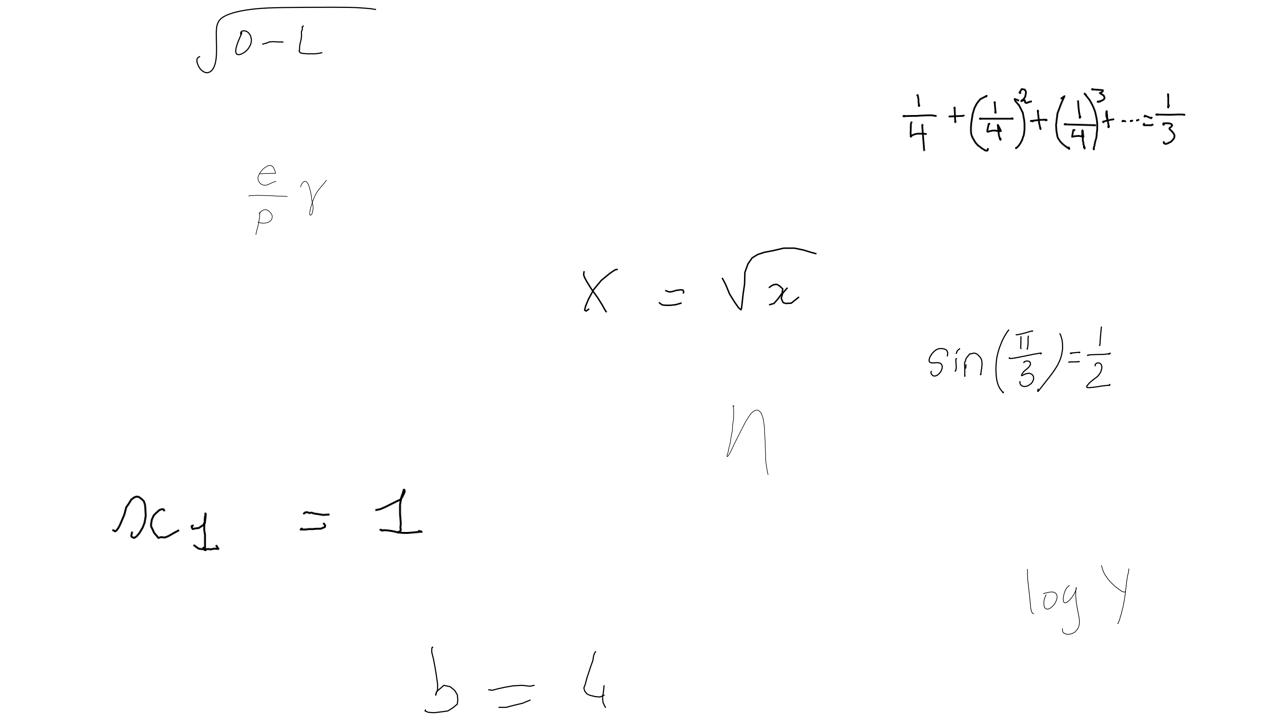 √(0 - L)
1/4 + (1/4)^2 + (1/4)^3 + ... = 1/3
e/p γ
X = √x
sin(π/3) = 1/2
η
x_1 = 1
log Y
b = 4